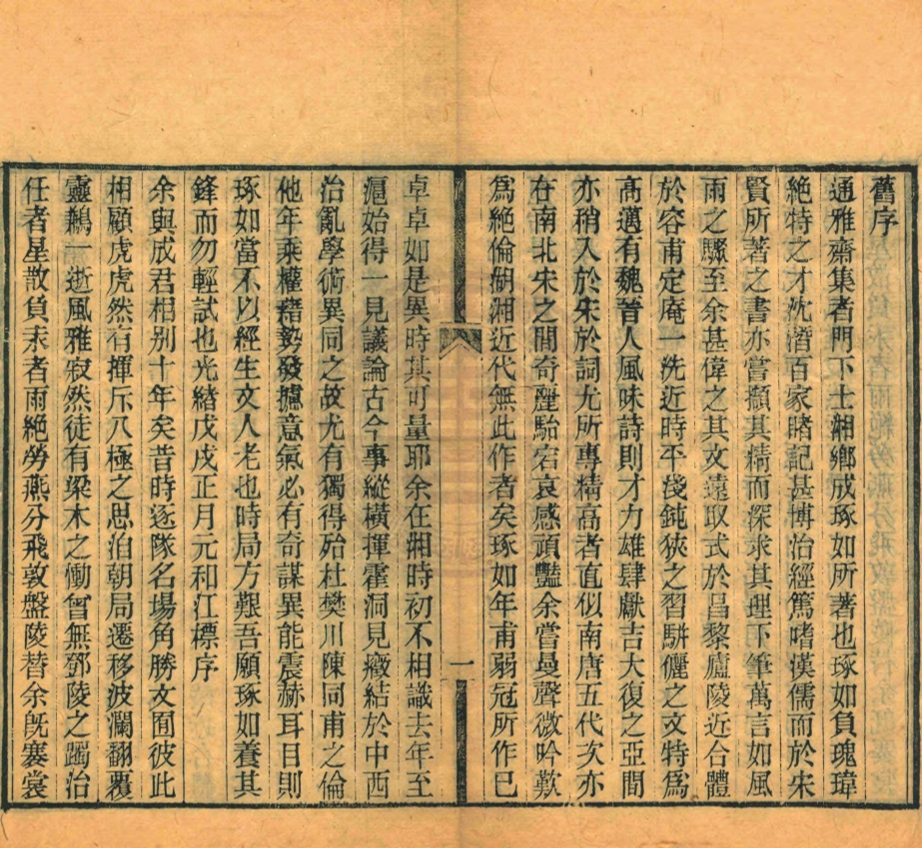 舊序
通雅齋集者門下士湘鄉成琢如所著也琢如負瑰瑋
絶特之才沈潛百家睹記甚博治經篤嗜漢儒而於宋
賢所著之書亦嘗纈其精而深求其理下筆萬言如風
雨之驟至余甚偉之其文遠取式於昌黎廬陵近合體
於容甫定庵一洗近時平淺鈍狹之習駢儷之文特爲
高邁有魏晉人風味詩則才力雄肆獻吉大復之亞間
亦稍入於宋於詞尤所專精高者直似南唐五代次亦
在南北宋之間奇麗駘宕哀感頑豔余嘗曼聲微吟歎
爲絶倫湖湘近代無此作者矣琢如年甫弱冠所作已
一
卓卓如是異時其可量耶余在湘時初不相識去年至
滬始得一見議論古今事縱橫揮霍洞見癥結於中西
治亂學術異同之故尤有獨得殆杜樊川陳同甫之倫
他年乘權藉勢發攄意氣必有奇謀異能震赫耳目則
琢如當不以經生文人老也時局方艱吾願琢如養其
鋒而勿輕試也光緒戊戌正月元和江標序
余與成君相別十年矣昔時逐隊名場角勝文囿彼此
相顧虎虎然有揮斥八極之思洎朝局遷移波瀾翻覆
靈鶼一逝風雅寂然徒有梁木之慟曾無鄧陵之躅治
任者星散負耒者雨絶勞燕分飛敦盤陵替余旣褰裳